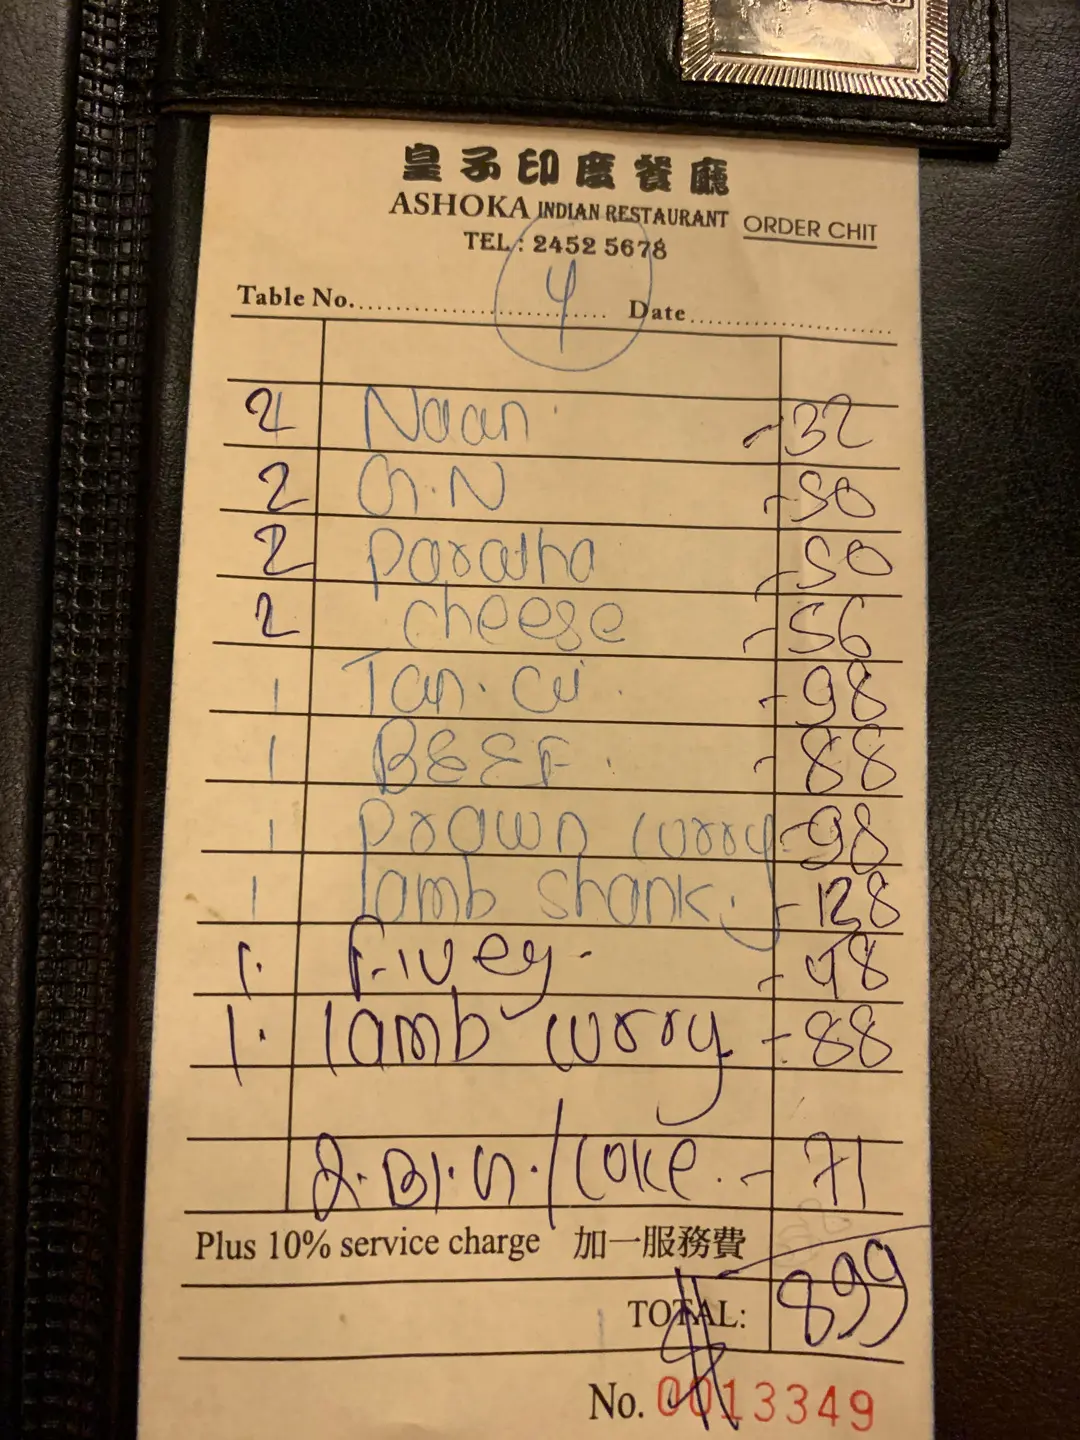 皇子印度餐廳
ASHOKA INDIAN RESTAURANT ORDER CHIT
TEL : 2452 5678
Table No. 4 Date
2 Naan - 32
2 G.N - 50
2 Paratha - 50
2 cheese - 56
1 Tan. - 98
1 BEEF. - 88
1 Prawn curry - 98
1 lamb shank. - 128
1. - 48
1. lamb curry - 88
/ coke. - 71
Plus 10% service charge 加一服務費
TOTAL: 899
No. 0013349